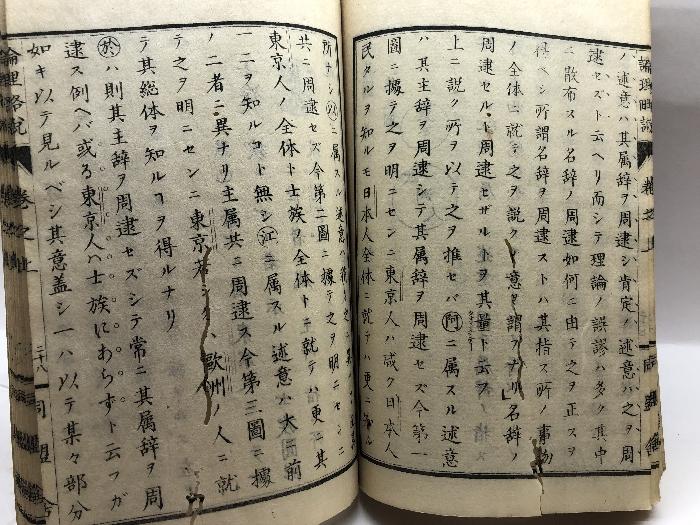 ノ述意ハ其属辞ヲ周逮シ肯定ノ述意ハ之ヲ周
逮セズト云ヘリ而シテ理論ノ誤謬ハ多ク其中
ニ散布スル名辞ノ周逮如何ニ由テ之ヲ正スヲ
得ベシ所謂名辞ヲ周逮ストハ其指ス所ノ事物
ノ全体ニ就テ之ヲ説クト意ヲ謂フナリ」名辞ノ
周逮セルト周逮セザルトヲ其量ト云フ
上ニ説ク所ヲ以テ之ヲ推セバ阿ニ属スル述意
ハ其主辞ヲ周逮シテ其属辞ヲ周逮セズ今第一
圖ニ據テ之ヲ明ニセンニ東京人ハ咸ク日本人
民タルヲ知ルモ日本人全体ニ就テハ更ニ知ル
所ナシ ニ属スル述意ハ
共ニ周逮セズ今第二圖ニ據テ之ヲ明ニセンニ
東京人ノ全体ト士族ノ全体トニ就テハ更ニ其
一二ヲ知ルコト無シ江ニ属スル述意ハ大ニ前
ノ二者ニ異ナリ主属共ニ周逮ス今第三圖ニ據
テ之ヲ明ニセンニ東京者 歐洲ノ人ニ就
テ其総体ヲ知ルコヲ得ルナリ
於ハ則其主辞ヲ周逮セズシテ常ニ其属辞ヲ周
逮ス例ヘバ或る東京人ハ士族にあらずト云フガ
如キ以テ見ルベシ其意盖シ一ハ以テ某々部分
論理略説 巻之上 二十八 同盟舎